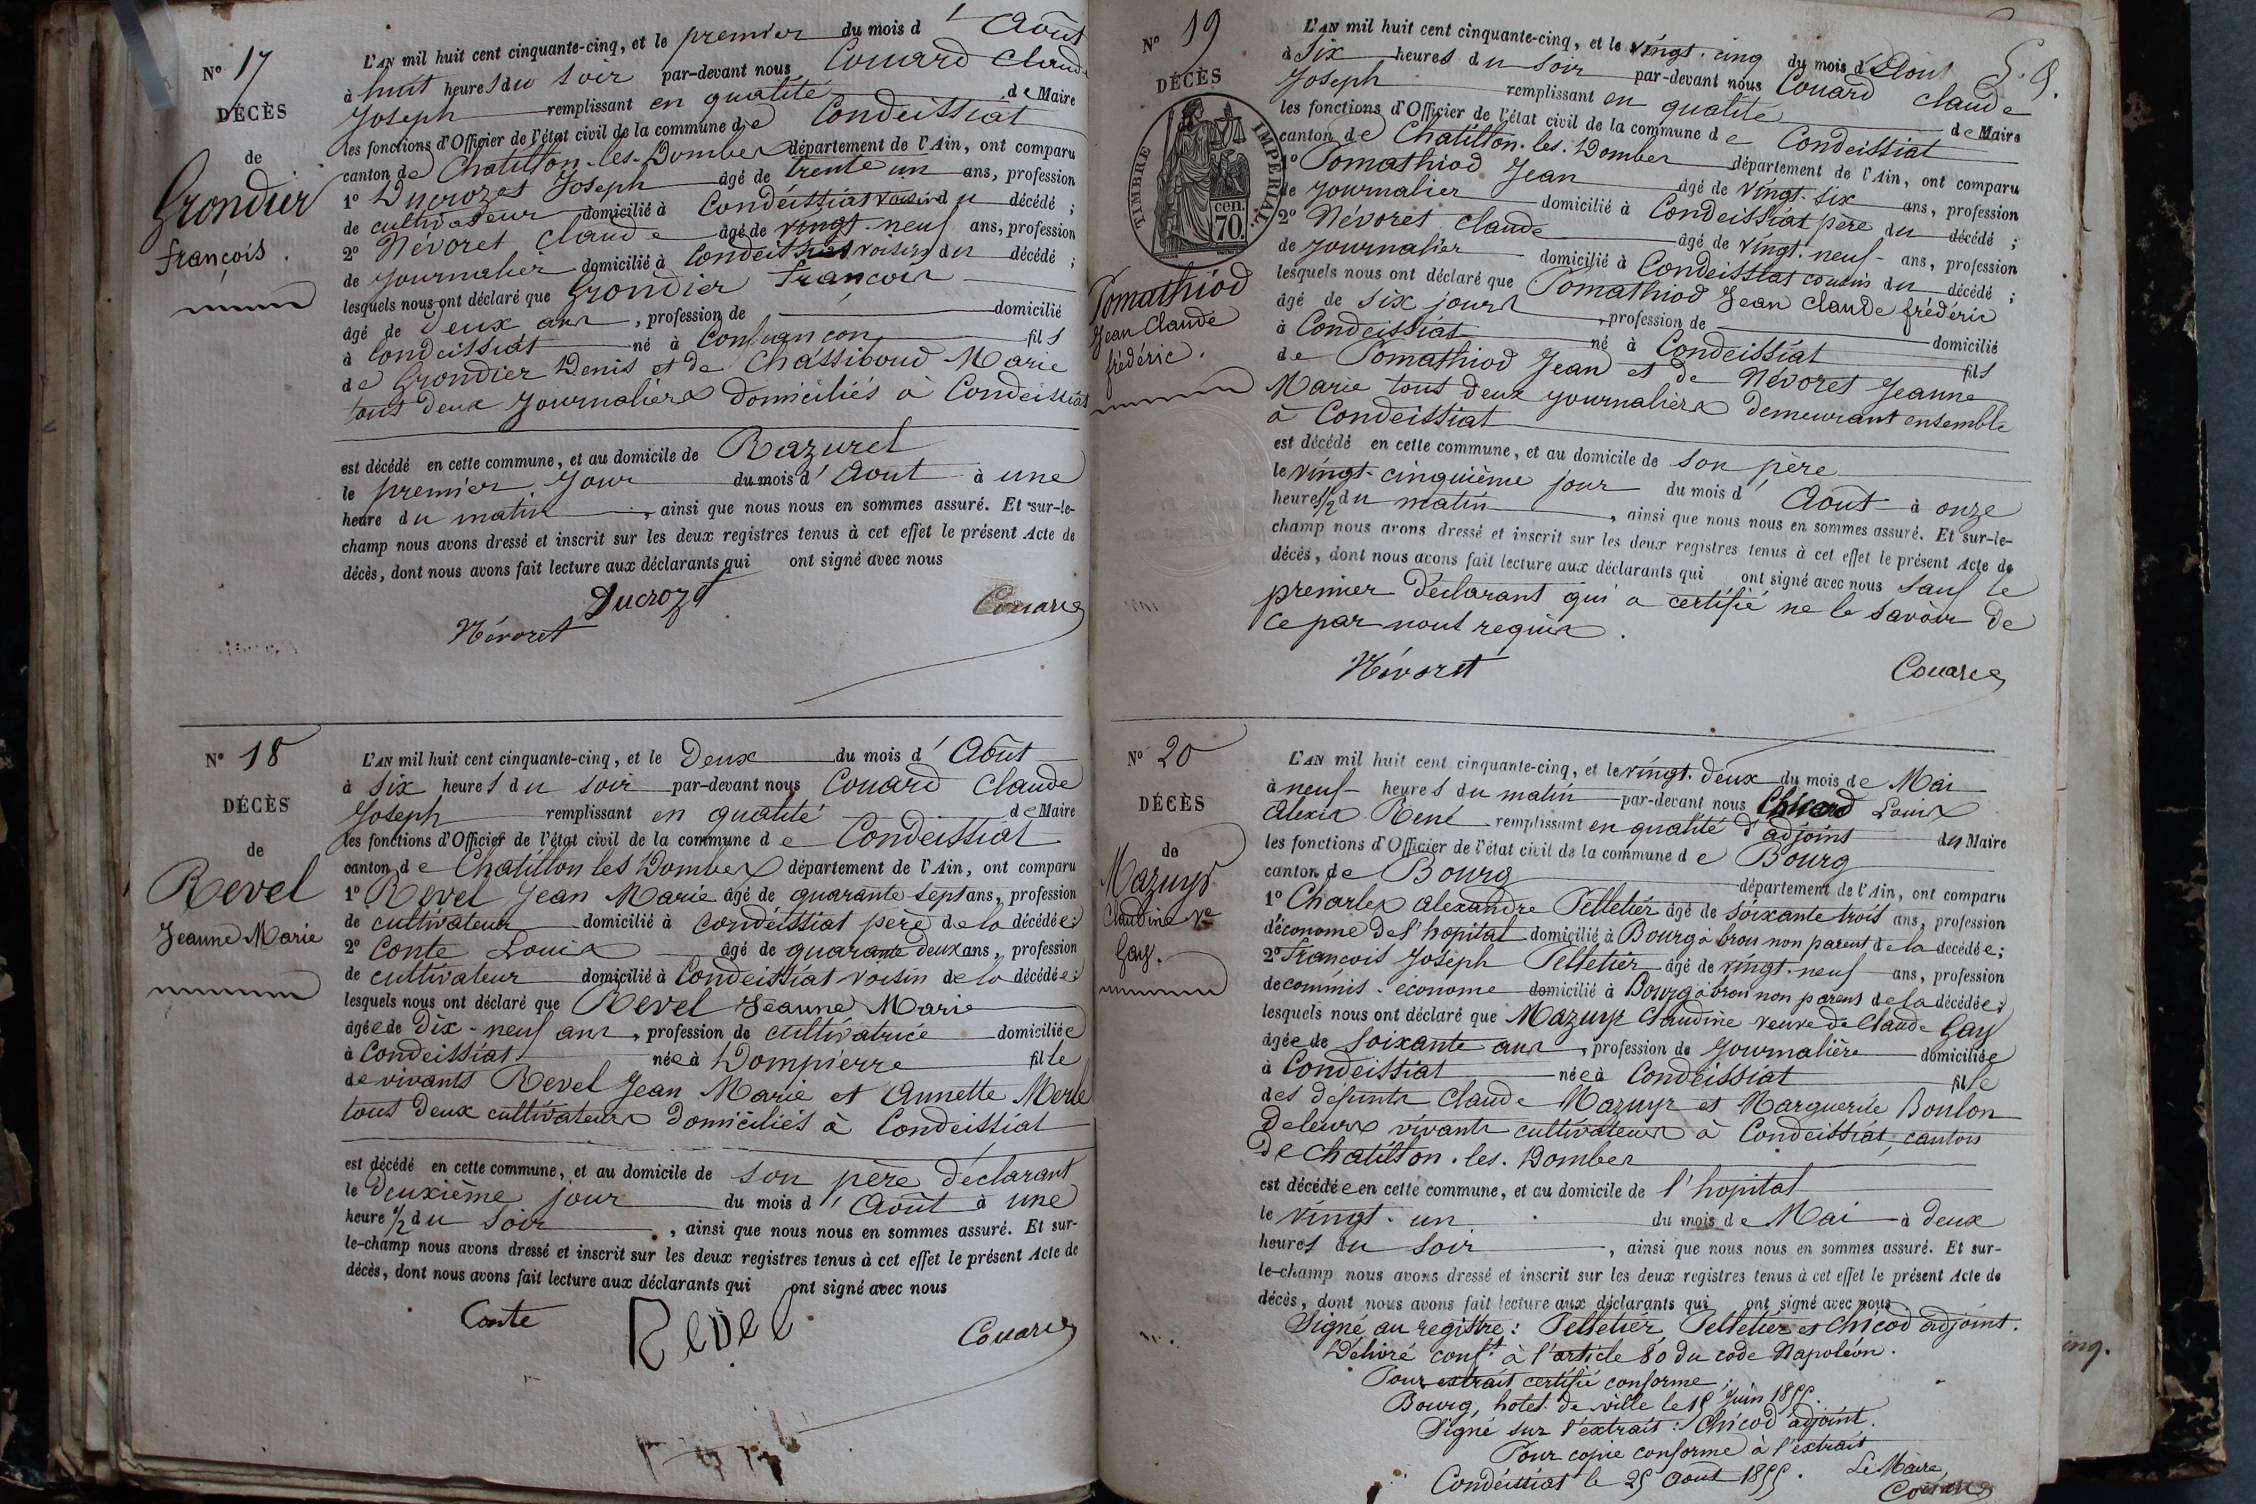 N° 17
DÉCÈS
de
Grondier
françois.
L'AN mil huit cent cinquante-cinq, et le premier du mois d'Août
à huit heures du soir par-devant nous Couard Claude
Joseph remplissant en qualité de Maire
les fonctions d'Officier de l'état civil de la commune de Condeissiat
canton de Chatillon-les-Dombes département de l'Ain, ont comparu
1° Ducrozet Joseph âgé de trente un ans, profession
de cultivateur domicilié à Condeissiat voisin du décédé ;
2° Névoret Claude âgé de vingt-neuf ans, profession
de journalier domicilié à Condeissiat voisin du décédé ;
lesquels nous ont déclaré que Grondier françois
âgé de deux ans, profession de domicilié
à Condeissiat né à fils
de Grondier Denis et de Chassiboud Marie
tous deux journaliers domiciliés à Condeissiat
est décédé en cette commune, et au domicile de Razurel
le premier jour du mois d'Aout à une
heure du matin, ainsi que nous nous en sommes assuré. Et sur-le-
champ nous avons dressé et inscrit sur les deux registres tenus à cet effet le présent Acte de
décès, dont nous avons fait lecture aux déclarants qui ont signé avec nous
Ducrozet
Névoret Couard
N° 18
DÉCÈS
de
Revel
Jeanne Marie
L'AN mil huit cent cinquante-cinq, et le Deux du mois d'Août
à six heures du soir par-devant nous Couard Claude
Joseph remplissant en qualité de Maire
les fonctions d'Officier de l'état civil de la commune de Condeissiat
canton de Chatillon les Dombes département de l'Ain, ont comparu
1° Revel Jean Marie âgé de quarante sept ans, profession
de cultivateur domicilié à condeissiat père de la décédée ;
2° Conte Louis âgé de quarante deux ans, profession
de cultivateur domicilié à Condeissiat voisin de la décédée ;
lesquels nous ont déclaré que Revel Jeanne Marie
âgée de Dix-neuf ans, profession de cultivatrice domiciliée
à Condeissiat née à Dompierre fille
de vivants Revel Jean Marie et Annette Merle
tous deux cultivateurs domiciliés à Condeissiat
est décédé en cette commune, et au domicile de son père déclarant
le deuxième jour du mois d'Août à une
heure 1/2 du soir, ainsi que nous nous en sommes assuré. Et sur-
le-champ nous avons dressé et inscrit sur les deux registres tenus à cet effet le présent Acte de
décès, dont nous avons fait lecture aux déclarants qui ont signé avec nous
Conte Revel Couard
N° 19
DÉCÈS
TIMBRE IMPÉRIAL
70 cen.
Pomathiod
Jean Claude
frédéric.
L'AN mil huit cent cinquante-cinq, et le vingt-cinq du mois d'Aout
à six heures du soir par-devant nous Couard Claude
Joseph remplissant en qualité de Maire
les fonctions d'Officier de l'état civil de la commune de Condeissiat
canton de Chatillon-les-Dombes département de l'Ain, ont comparu
1° Pomathiod Jean âgé de vingt-six ans, profession
de journalier domicilié à Condeissiat père du décédé ;
2° Névoret Claude âgé de vingt-neuf ans, profession
de journalier domicilié à Condeissiat cousin du décédé ;
lesquels nous ont déclaré que Pomathiod Jean Claude frédéric
âgé de six jours, profession de domicilié
à Condeissiat né à Condeissiat fils
de Pomathiod Jean et de Névoret Jeanne
Marie tous deux journaliers demeurant ensemble
à Condeissiat
est décédé en cette commune, et au domicile de son père
le vingt-cinquième jour du mois d'Août à onze
heures 1/2 du matin, ainsi que nous nous en sommes assuré. Et sur-le-
champ nous avons dressé et inscrit sur les deux registres tenus à cet effet le présent Acte de
décès, dont nous avons fait lecture aux déclarants qui ont signé avec nous sauf le
premier déclarant qui a certifié ne le savoir de
ce par nous requis.
Névoret Couard
N° 20
DÉCÈS
de
Mazuyr
Claudine Ve
Gay.
L'AN mil huit cent cinquante-cinq, et le vingt-deux du mois de Mai
à neuf heures du matin par-devant nous Chicod Louis
Alexis René remplissant en qualité d'adjoint du Maire
les fonctions d'Officier de l'état civil de la commune de Bourg
canton de Bourg département de l'Ain, ont comparu
1° Charles Alexandre Pelletier âgé de soixante trois ans, profession
d'économe de l'hopital domicilié à Bourg à brou non parent de la décédée ;
2° François Joseph Pelletier âgé de vingt-neuf ans, profession
de commis-économe domicilié à Bourg à brou non parent de la décédée ;
lesquels nous ont déclaré que Mazuyr Claudine veuve de Claude Gay
âgée de soixante ans, profession de journalière domiciliée
à Condeissiat née à Condeissiat fille
des defunts Claude Mazuyr et Marguerite Boulon
de leurs vivants cultivateurs à Condeissiat, canton
de Chatillon-les-Dombes
est décédée en cette commune, et au domicile de l'hopital
le vingt-un du mois de Mai à deux
heures du soir, ainsi que nous nous en sommes assuré. Et sur-
le-champ nous avons dressé et inscrit sur les deux registres tenus à cet effet le présent Acte de
décès, dont nous avons fait lecture aux déclarants qui ont signé avec nous
Signé au registre : Pelletier, Pelletier et Chicod adjoint.
Délivré conft à l'article 80 du code Napoléon.
Pour extrait certifié conforme ;
Bourg, hotel de ville le 15 Juin 1855.
Signé sur l'extrait : Chicod adjoint.
Pour copie conforme à l'extrait
Condeissiat le 25 aout 1855. Le Maire,
Couard